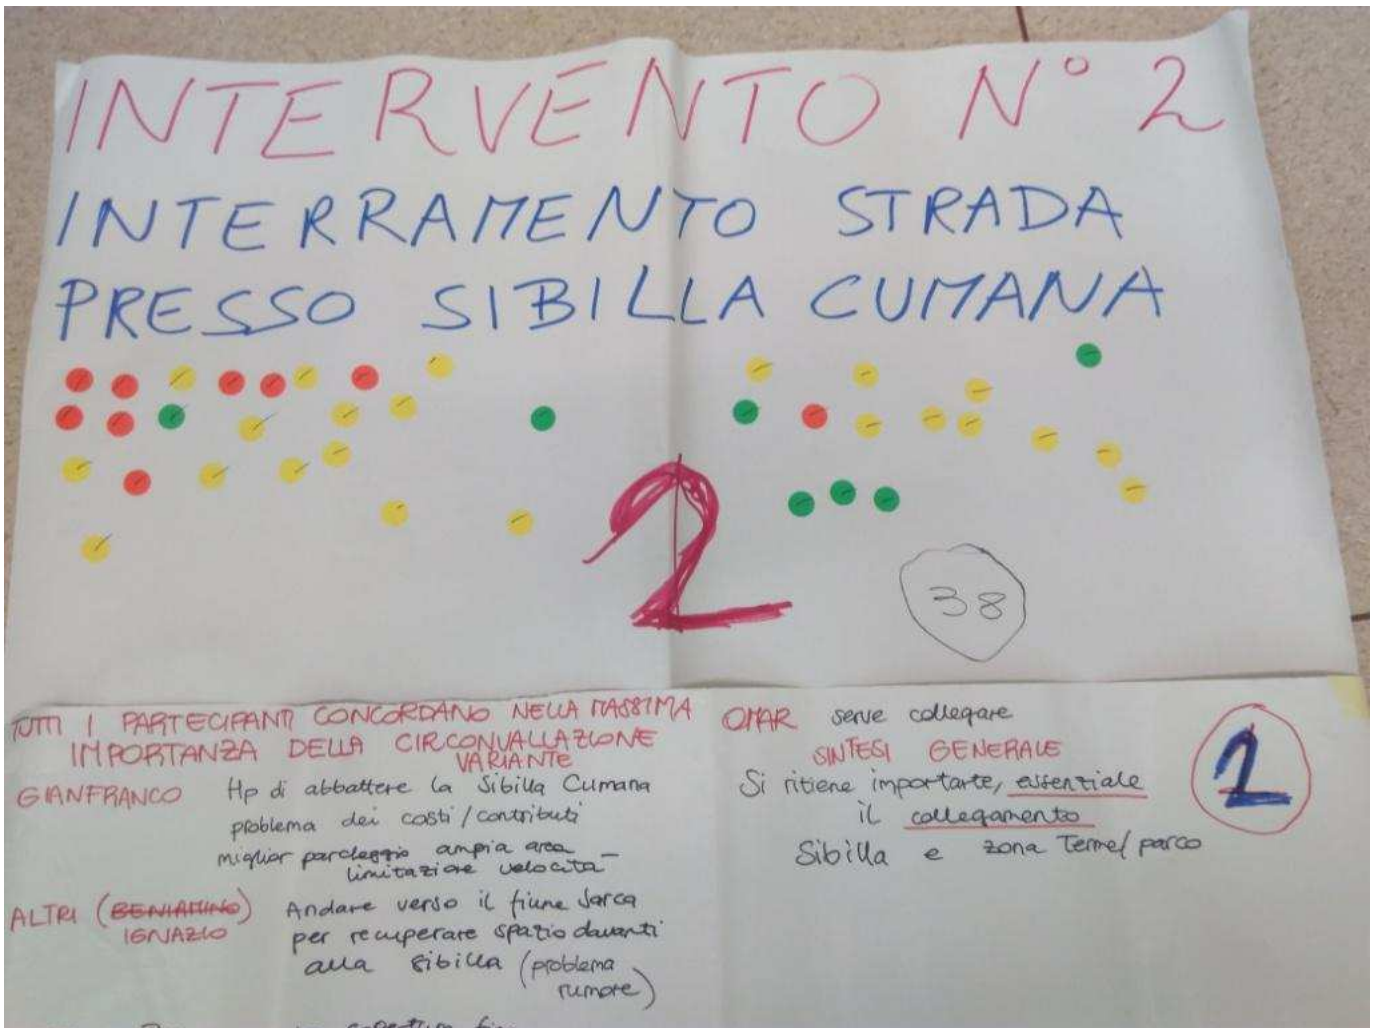 INTERVENTO N° 2
INTERRAMENTO STRADA
PRESSO SIBILLA CUMANA
2
38
TUTTI I PARTECIPANTI CONCORDANO NELLA MASSIMA
IMPORTANZA DELLA CIRCONVALLAZIONE
VARIANTE
GIANFRANCO Hp di abbattere la Sibilla Cumana
problema dei costi/contributi
miglior parcheggio ampia area
limitazione velocità
ALTRI (BENIAMINO)
IGNAZIO
Andare verso il fiume Sarca
per recuperare spazio davanti
alla Sibilla (problema
rumore)
copertura
OMAR serve collegare
SINTESI GENERALE
Si ritiene importante, essenziale
il collegamento
Sibilla e zona Terme/parco
2